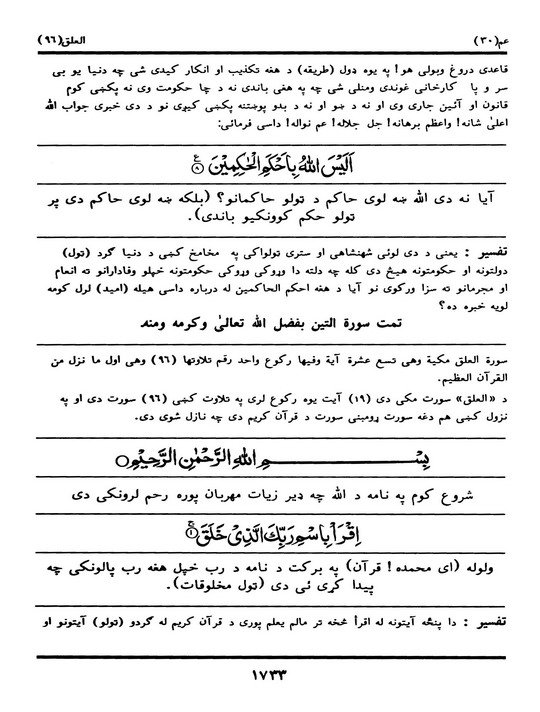 عم (۳۰)
العلق (۹۶)
قاعدی دروغ وبولی هو! په یوه ډول (طریقه) د هغه تکذیب او انکار کیدی شی چه دنیا یو بی
سر و پا کارخانی غوندی ومنلی شی چه په هغی باندی نه د چا حکومت وی نه پکښی کوم
قانون او آئین جاری وی او نه د ښو او نه د بدو پوښتنه پکښی کیږی نو د دی خبری جواب الله
اعلیٰ شانه! واعظم برهانه! جل جلاله! عم نواله! داسی فرمائی:
اَلَيْسَ اللهُ بِاَحْكَمِ الْحٰكِمِيْنَ ۸
آیا نه دی الله ښه لوی حاکم د ټولو حاکمانو؟ (بلکه ښه لوی حاکم دی پر
ټولو حکم کوونکیو باندی).
تفسیر : یعنی د دی لوئی شهنشاهی او ستری ټولواکی په مخامخ کښی د دنیا گرد (ټول)
دولتونه او حکومتونه هیڅ دی کله چه دلته دا وړوکی وړوکی حکومتونه خپلو وفادارانو ته انعام
او مجرمانو ته سزا ورکوی نو آیا د هغه احکم الحاکمین له درباره داسی هیله (امید) لرل کومه
لویه خبره ده؟
تمت سورة التین بفضل الله تعالیٰ وکرمه ومنه
سورة العلق مکیة وهی تسع عشرة آیة وفیها رکوع واحد رقم تلاوتها (۹۶) وهی اول ما نزل من
القرآن العظیم.
د «العلق» سورت مکی دی (۱۹) آیت یوه رکوع لری په تلاوت کښی (۹۶) سورت دی او په
نزول کښی هم دغه سورت ړومبنی سورت د قرآن کریم دی چه نازل شوی دی.
بِسْمِ اللهِ الرَّحْمٰنِ الرَّحِيْمِ
شروع کوم په نامه د الله چه ډیر زیات مهربان پوره رحم لرونکی دی
اِقْرَاْ بِاسْمِ رَبِّكَ الَّذِيْ خَلَقَ ۱
ولوله (ای محمده! قرآن) په برکت د نامه د رب خپل هغه رب پالونکی چه
پیدا کړی ئی دی (ټول مخلوقات).
تفسیر : دا پنځه آیتونه له اقرأ څخه تر مالم یعلم پوری د قرآن کریم له گردو (ټولو) آیتونو او
۱۷۳۳